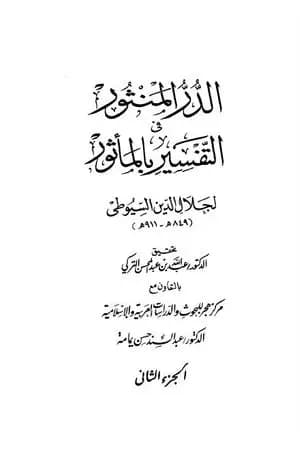 الدُّرُّ المَنْثُور
في
التَّفْسِيرِ بِالمَأْثُورِ
لجلال الدين السيوطي
(٨٤٩هـ - ٩١١هـ)
تحقيق
الدكتور/عبدالله بن عبدالمحسن التركي
بالتعاون مع
مركز هجر للبحوث والدراسات العربية والإسلامية
الدكتور/عبدالسند حسن يمامة
الجزء الثاني